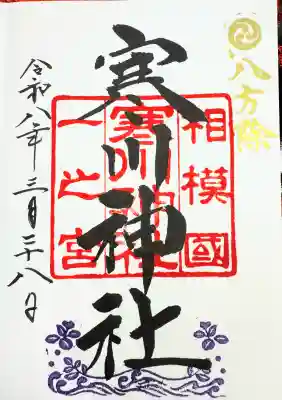 八方除
相模國
寒川神社
一之宮
寒川神社
令和八年三月二十八日